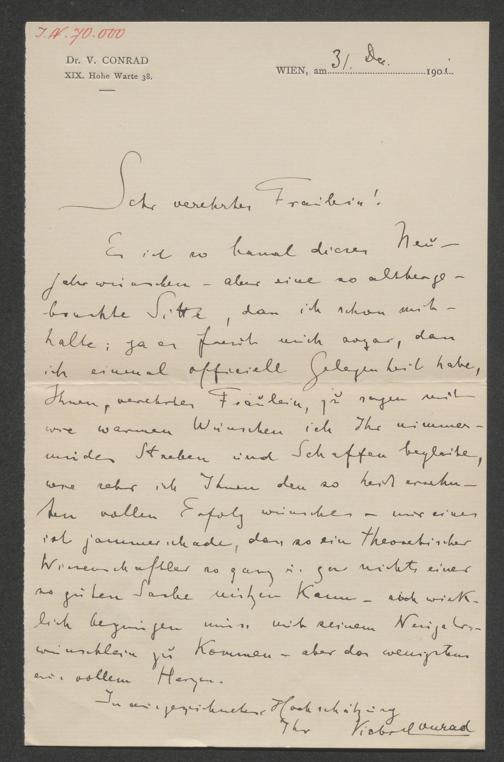 I.N. 70.000
Dr. V. CONRAD
XIX. Hohe Warte 38.
WIEN, am 31. Dez. 190
Sehr verehrtes Fräulein!
Es ist so banal dieses Neu-
jahrwünschen - aber eine so altherge-
brachte Sitte, dass ich schon mit-
halte; ja es freut mich sogar, dass
ich einmal officiell Gelegenheit habe,
Ihnen, verehrtes Fräulein, zu sagen mit
wie warmen Wünschen ich Ihr nimmer-
müdes Streben und Schaffen begleite,
wie sehr ich Ihnen den so heiß ersehn-
ten vollen Erfolg wünsche - nur eines
ist jammerschade, dass so ein theoretischer
Wissenschaftler so ganz u. gar nichts einer
so guten Sache nützen kann - sich wirk-
lich begnügen muss mit seinem Neujahrs-
wünschlein zu kommen - aber das wenigstens
aus vollem Herzen.
In ausgezeichneter Hochschätzung
Ihr Victor Conrad